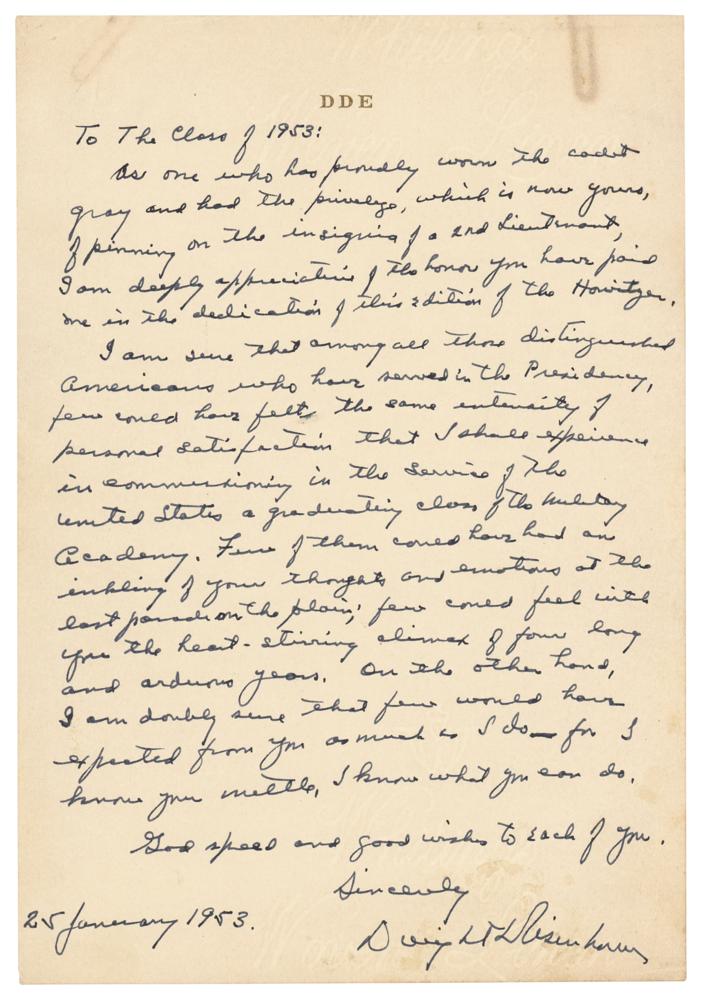 DDE
To The Class of 1953:
As one who has proudly worn the cadet
gray and had the privelege, which is now yours,
of pinning on the insignia of a 2nd Lieutenant,
I am deeply appreciative of the honor you have paid
me in the dedication of this edition of the Howitzer.
I am sure that among all those distinguished
Americans who have served in the Presidency,
few could have felt the same intensity of
personal satisfaction that I shall experience
in commissioning in the service of the
United States a graduating class of the Military
Academy. Few of them could have had an
inkling of your thoughts and emotions at the
last parade on the plain; few could feel with
you the heart-stirring climax of four long
and arduous years. On the other hand,
I am doubly sure that few would have
expected from you as much as I do — for I
know your mettle, I know what you can do.
God speed and good wishes to each of you.
Sincerely
25 January 1953.
Dwight D Eisenhower